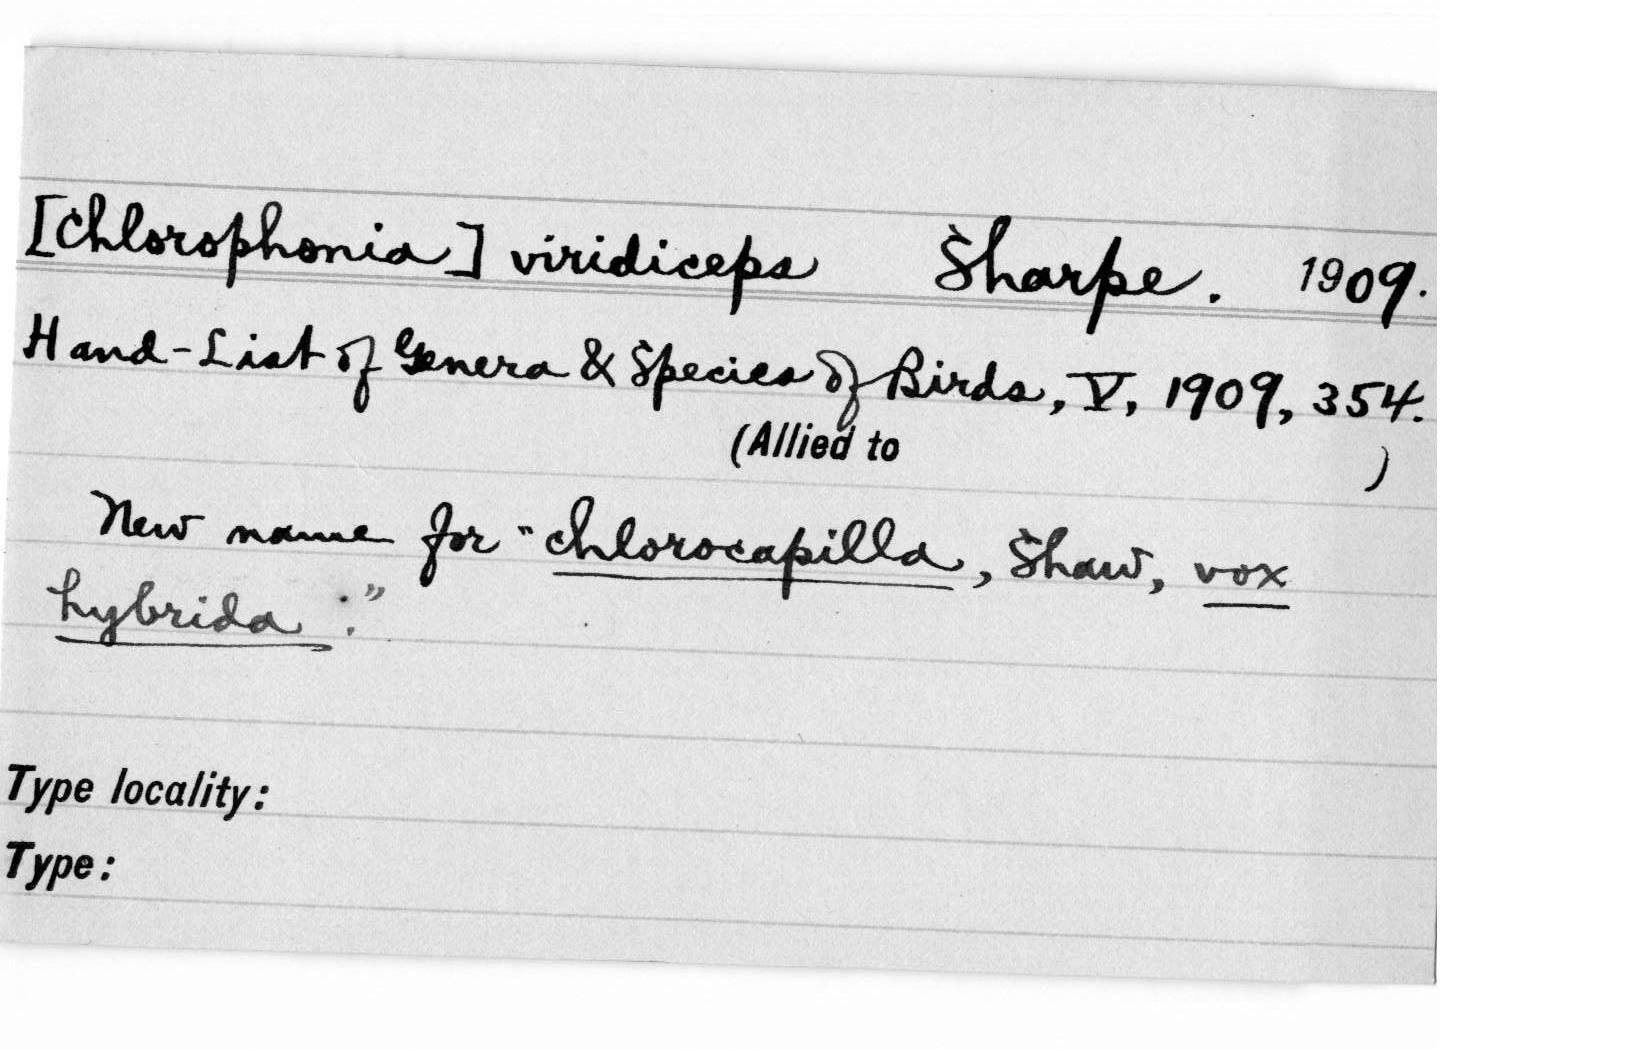 [Chlorophonia] viridiceps Sharpe. 1909.
Hand-List of Genera & Species of Birds, V, 1909, 354.
(Allied to )
New name for "chlorocapilla, Shaw, vox
hybrida."
Type locality:
Type: